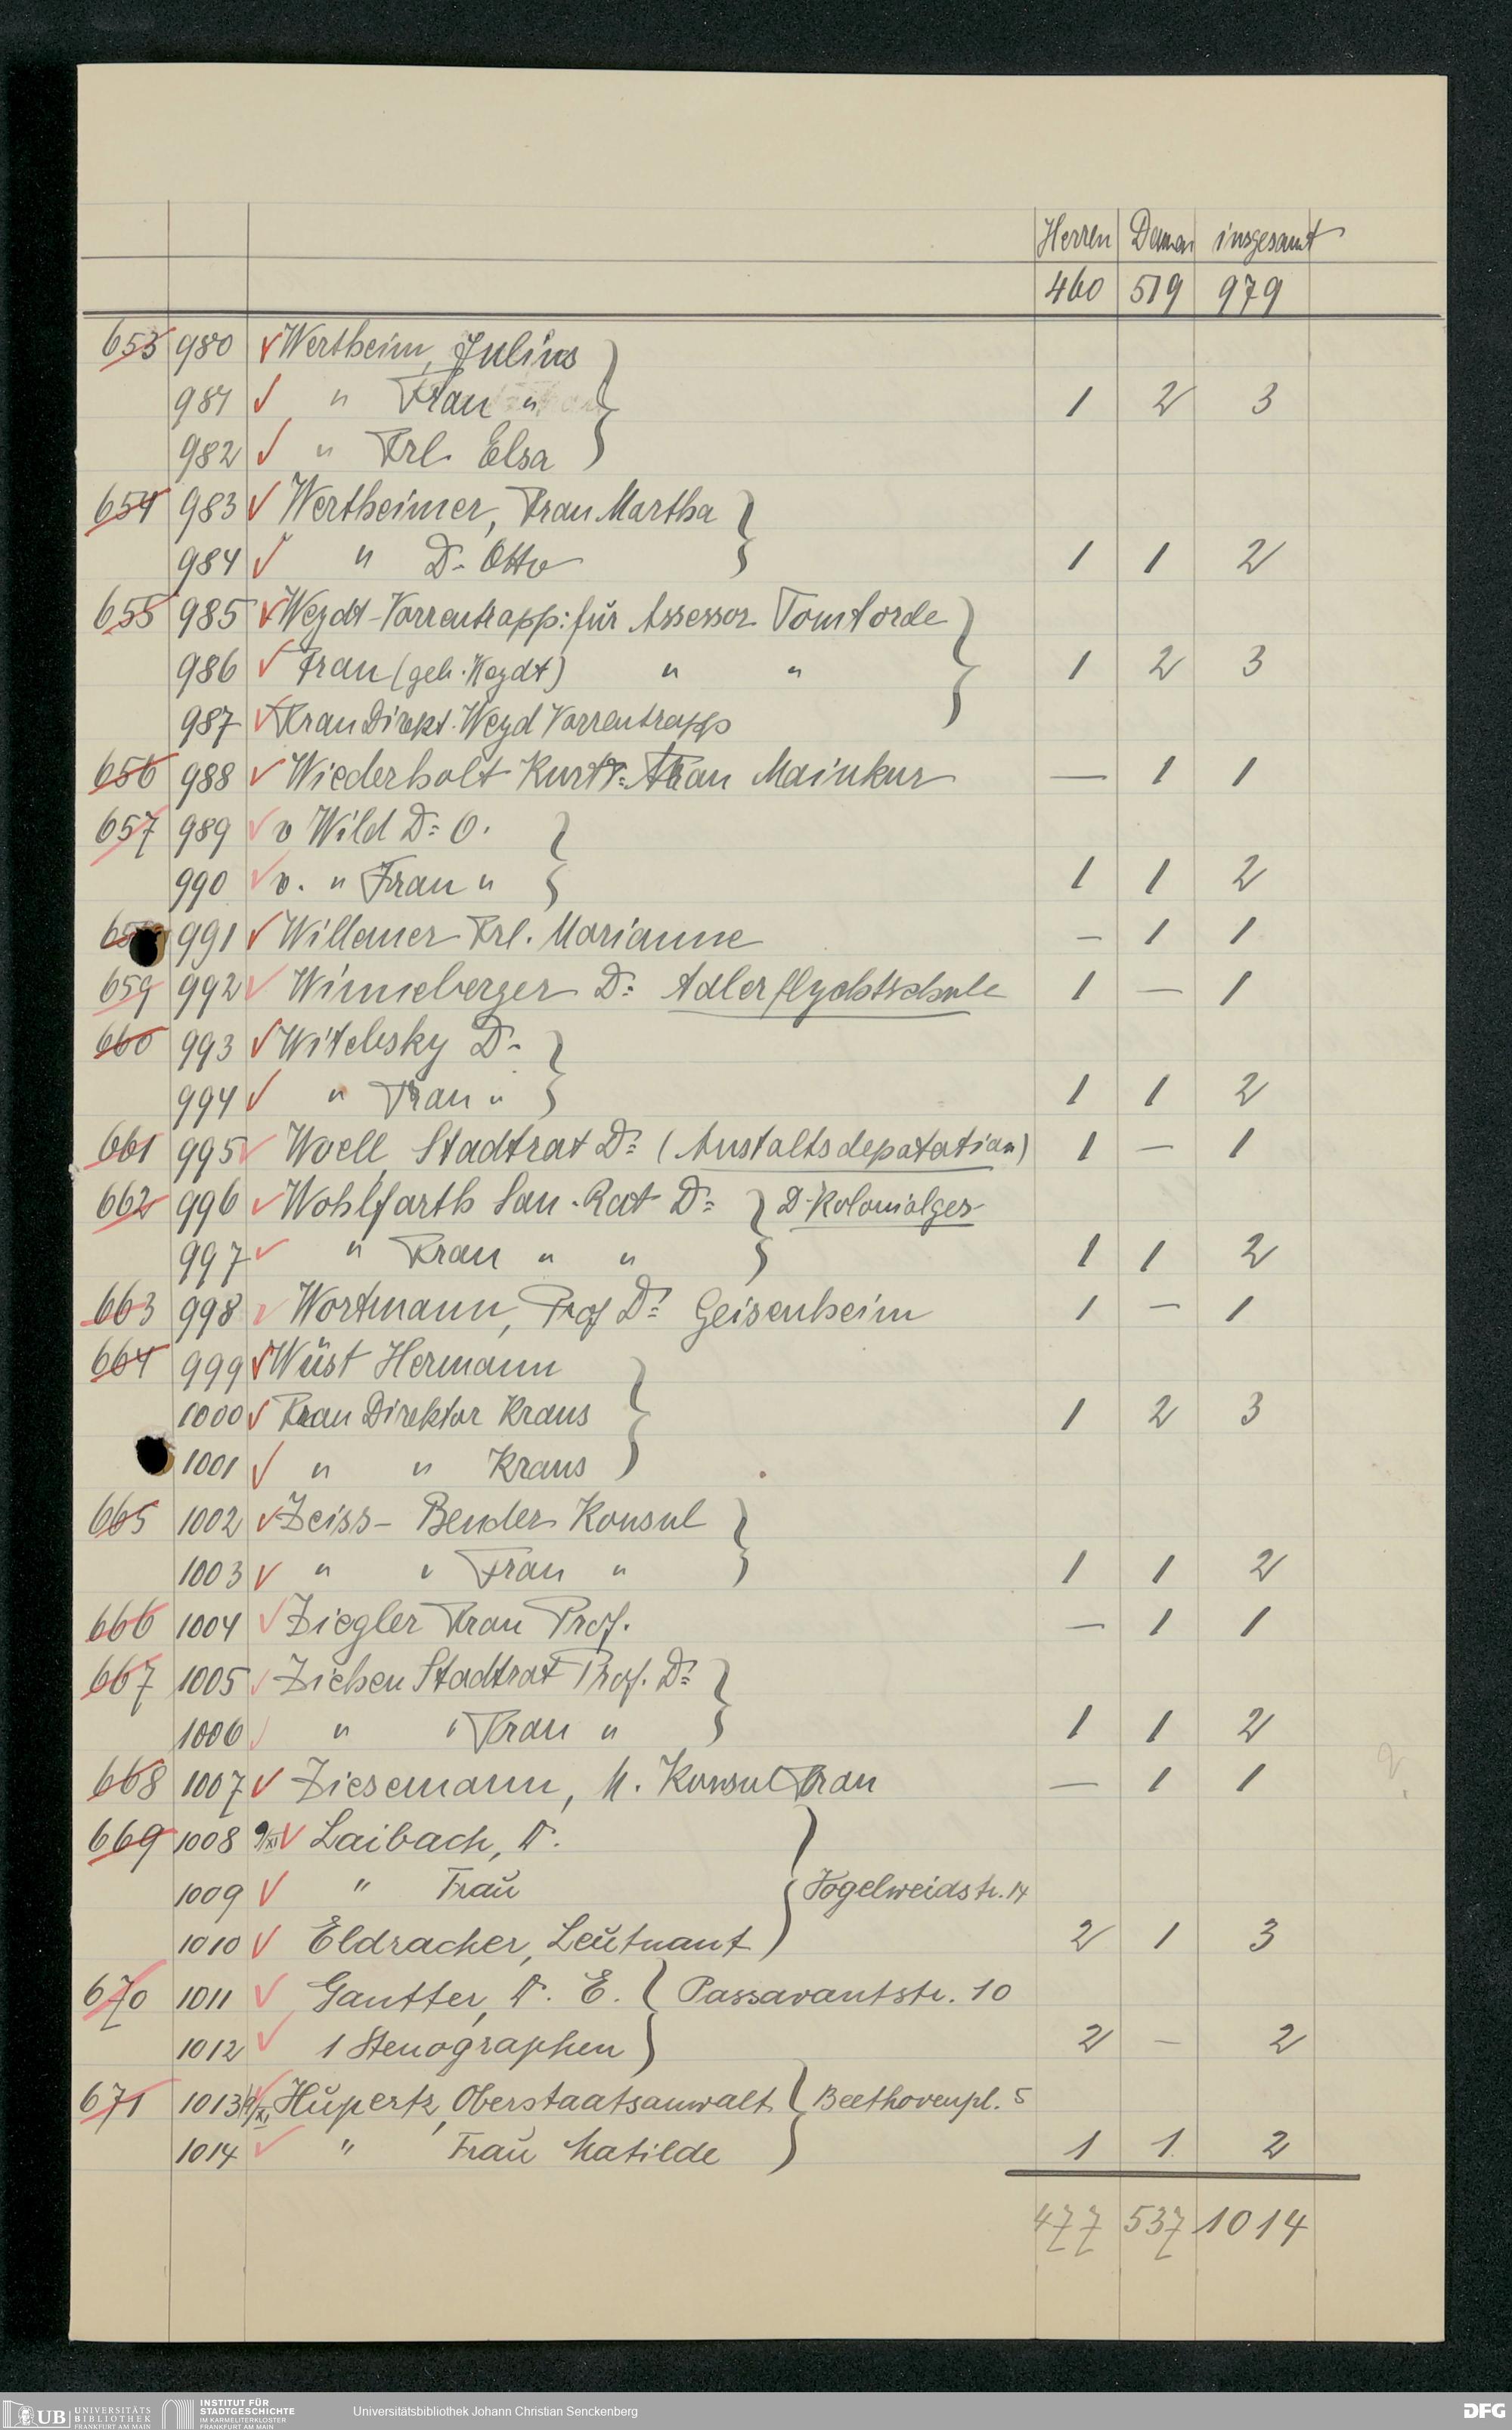 Herren Damen insgesamt
460 519 979
653 980 Wertheim, Julius
981 " Frau " 1 2 3
982 " Frl. Elsa
654 983 Wertheimer, Frau Martha
984 " Dr. Otto 1 1 2
655 985 Weydt-Varrentrapp: für Assessor Tomforde
986 Frau (geb. Weydt) " " 1 2 3
987 Frau Direkt. Weyd Varrentrapp
656 988 Wiederholt Kurt Frau Mainkur — 1 1
657 989 v Wild Dr. O.
990 v. " Frau " 1 1 2
991 Willemer Frl. Marianne — 1 1
659 992 Winneberger Dr. Adlerflychtschule 1 — 1
660 993 Witebsky Dr.
994 " Frau " 1 1 2
661 995 Woell Stadtrat Dr. (Anstaltsdeputation) 1 — 1
662 996 Wohlfarth San.-Rat Dr. D. Kolonialges
997 " Frau " " 1 1 2
663 998 Wortmann, Prof Dr. Geisenheim 1 — 1
664 999 Wüst Hermann
1000 Frau Direktor Kraus 1 2 3
1001 " " Kraus
665 1002 Zeiss-Bender Konsul
1003 " " Frau " 1 1 2
666 1004 Ziegler Frau Prof. — 1 1
667 1005 Ziehen Stadtrat Prof. Dr.
1006 " " Frau " 1 1 2
668 1007 Ziesemann, M. Konsul Frau — 1 1
669 1008 9/XI Laibach, Dr.
1009 " Frau Vogelweidstr. 14
1010 Eldracher, Leutnant 2 1 3
670 1011 Gantter, Dr. E. Passavantstr. 10
1012 1 Stenographen 2 — 2
671 1013 9/XI Hupertz, Oberstaatsanwalt Beethovenpl. 5
1014 " Frau Matilde 1 1 2
477 537 1014
UB UNIVERSITÄTS BIBLIOTHEK FRANKFURT AM MAIN
INSTITUT FÜR STADTGESCHICHTE IM KARMELITERKLOSTER FRANKFURT AM MAIN
Universitätsbibliothek Johann Christian Senckenberg
DFG